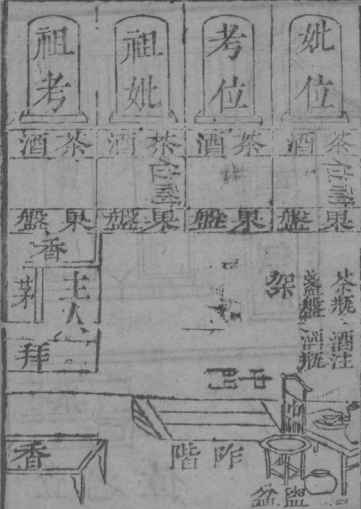 妣位
考位
祖妣
祖考
茶酒
茶酒
茶酒
茶酒
果盤
果盤
果盤
果盤
香
主人
茅
拜
茶瓶 酒注
盞盤 酒瓶
架
阼階
盥盆
香